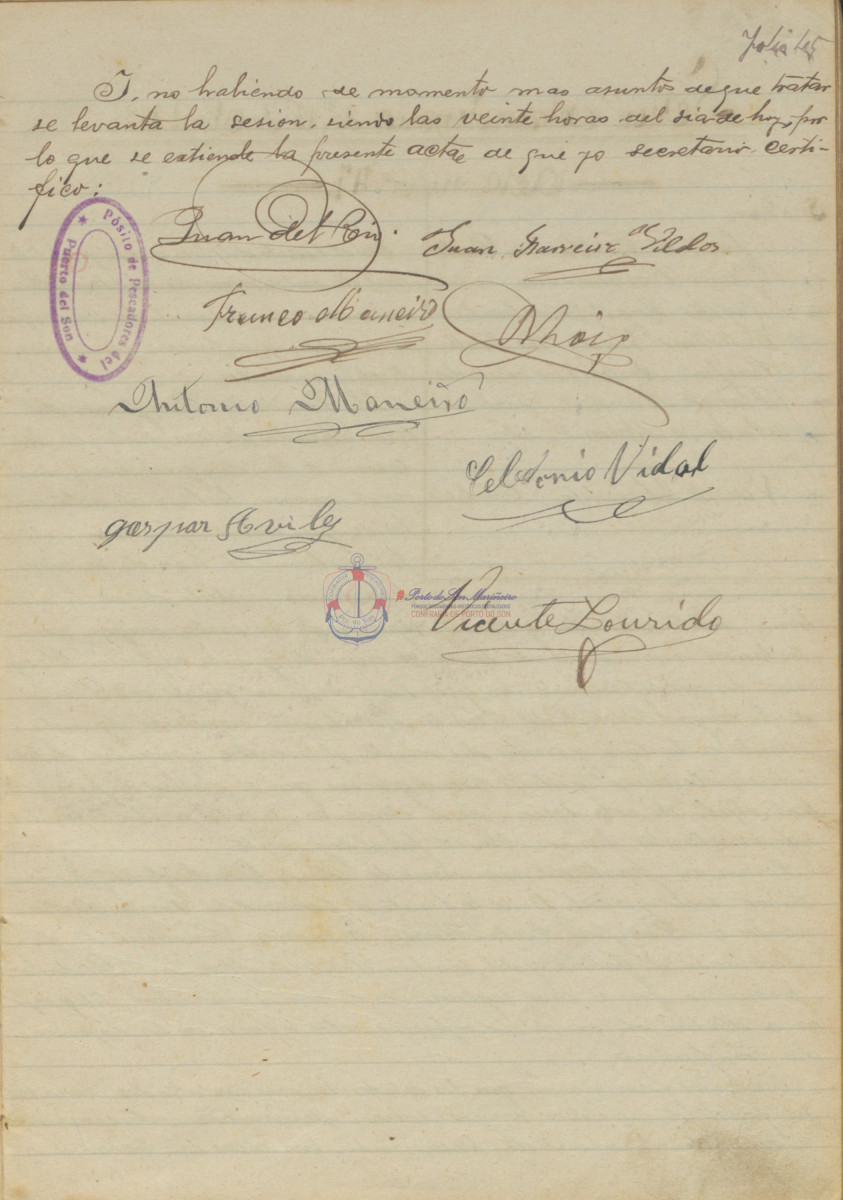 Folio 45
I, no habiendo de momento mas asuntos de que tratar
se levanta la sesión, siendo las veinte horas del dia de hoy, por
lo que se extiende la presente acta de que yo secretario certi-
fico:
Pósito de Pescadores del
Puerto del Son
Juan del Rio.
Juan
Franco Maneiro
Antonio Maneiro
Celedonio Vidal
gaspar Aviles
Porto do Son Mariñeiro
CONFRARÍA DE PORTO DO SON
Vicente Lourido